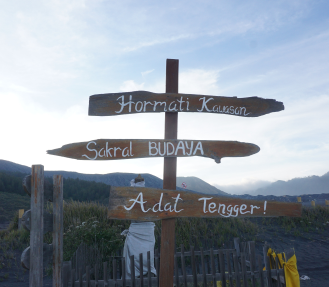 Hormati Kawasan
Sakral BUDAYA
Adat Tengger!